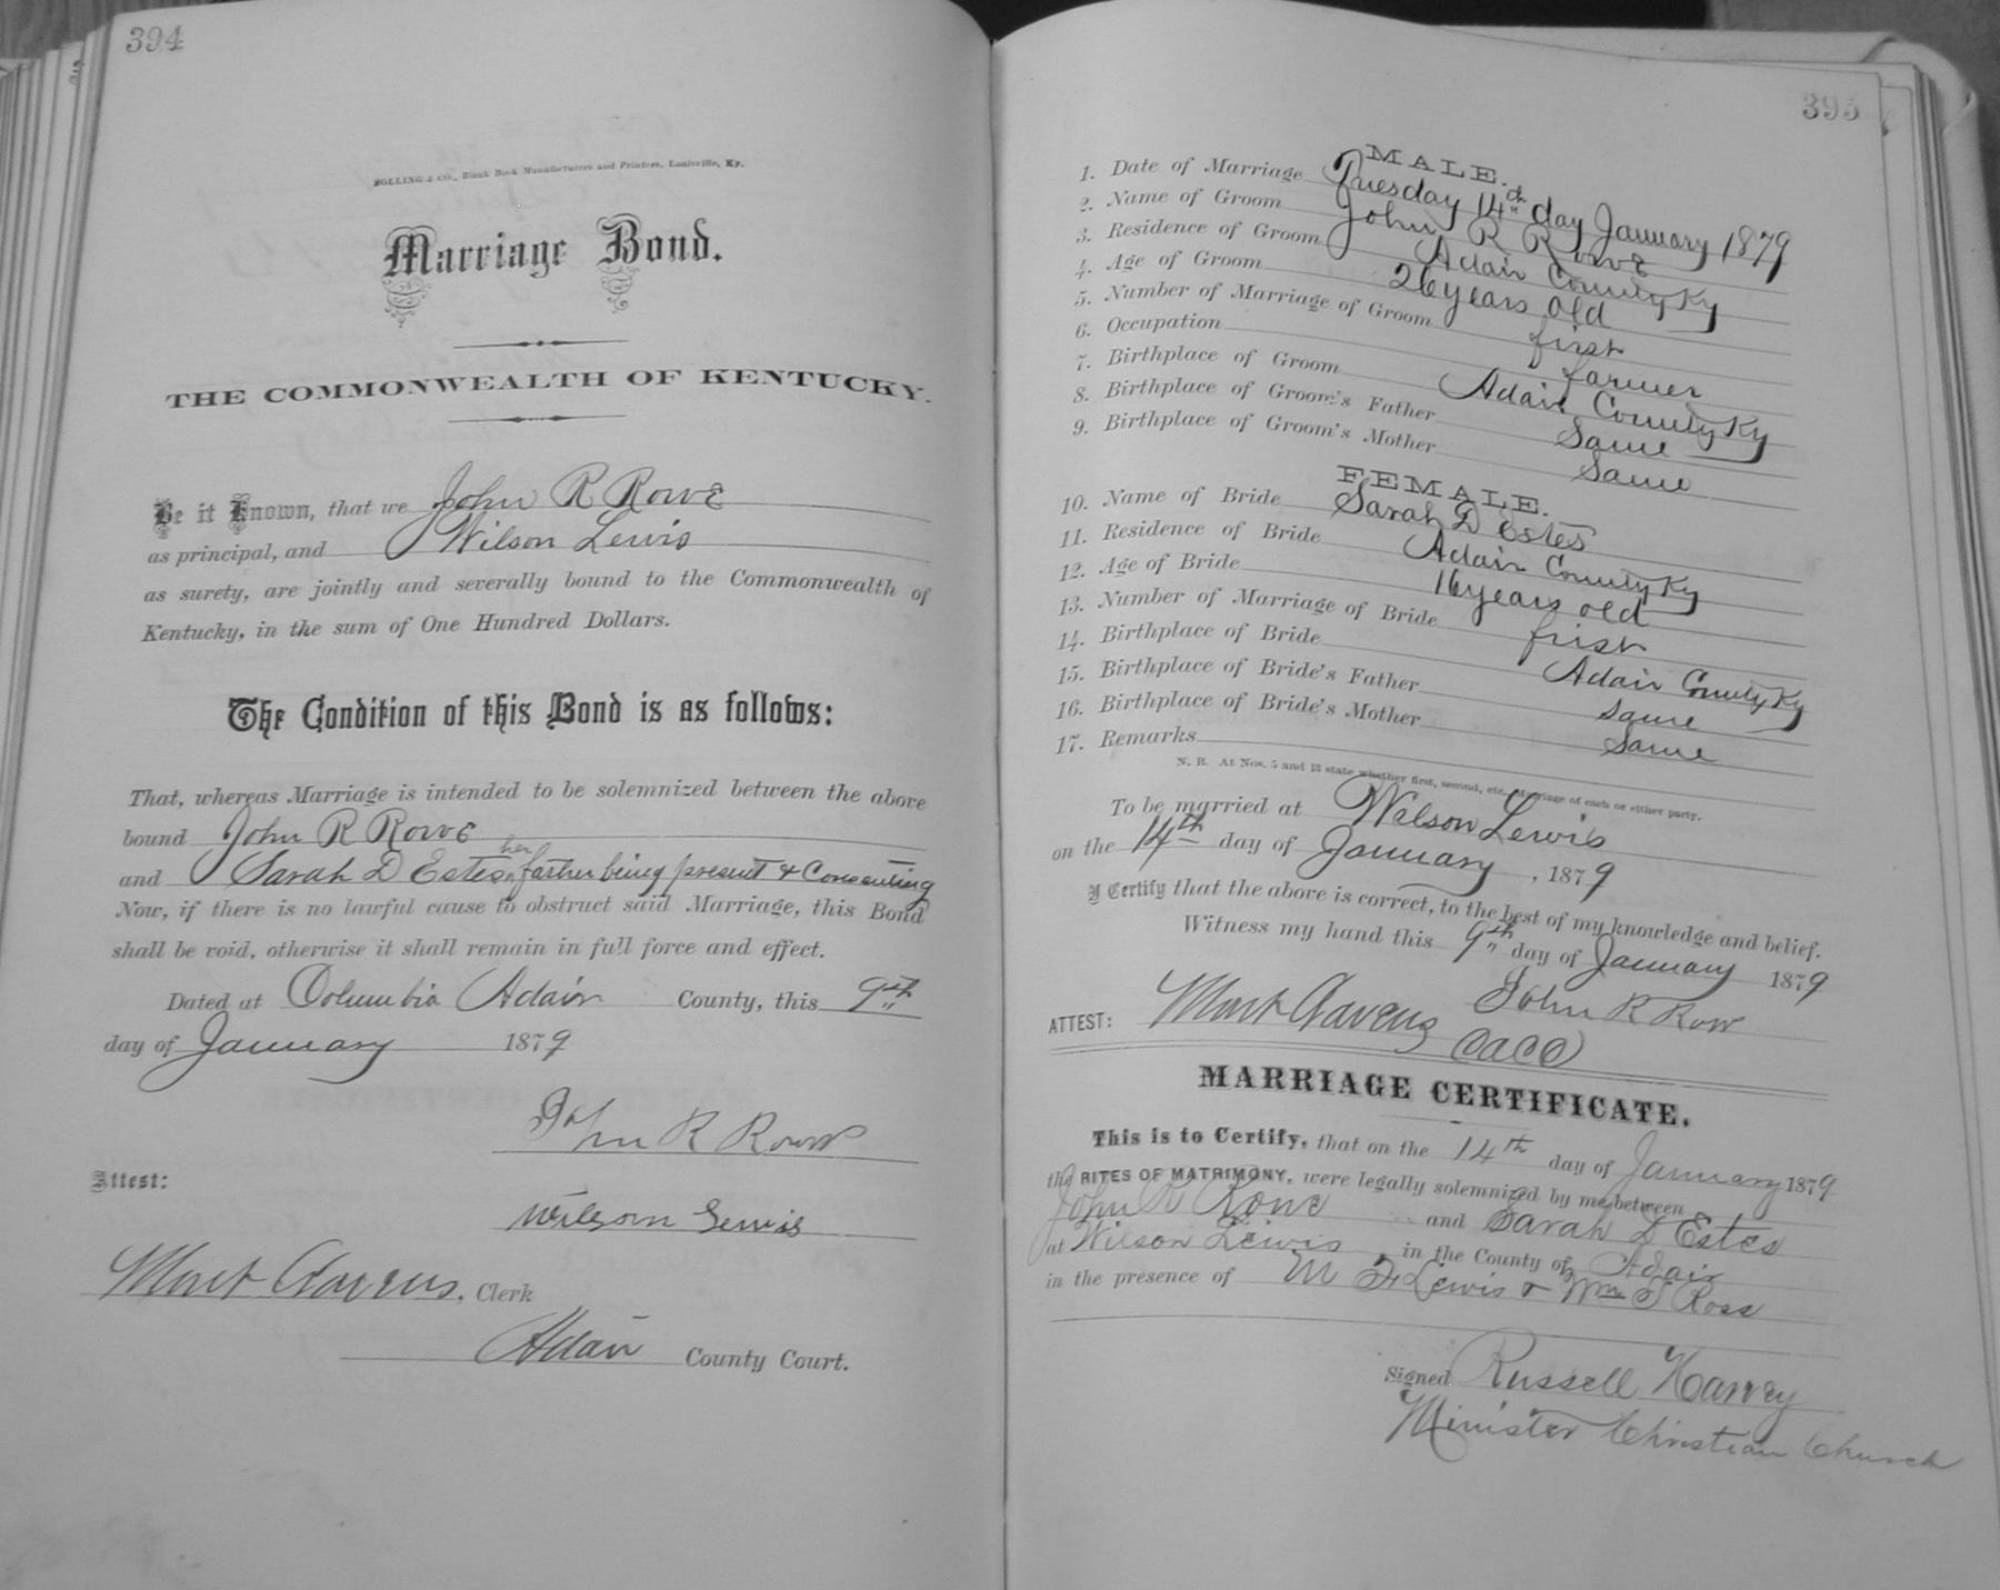 394
BOLLING & CO., Blank Book Manufacturers and Printers, Louisville, Ky.
Marriage Bond.
THE COMMONWEALTH OF KENTUCKY.
Be it Known, that we John R Rowe
as principal, and Wilson Lewis
as surety, are jointly and severally bound to the Commonwealth of
Kentucky, in the sum of One Hundred Dollars.
The Condition of this Bond is as follows:
That, whereas Marriage is intended to be solemnized between the above
bound John R Rowe
and Sarah D Estes her father being present & Consenting
Now, if there is no lawful cause to obstruct said Marriage, this Bond
shall be void, otherwise it shall remain in full force and effect.
Dated at Columbia Adair County, this 9th
day of January 1879
John R Roww
Attest:
Wilson Lewis
Mort Cravens, Clerk
Adair County Court.
395
MALE.
1. Date of Marriage Tuesday 14th day January 1879
2. Name of Groom John R Rowe
3. Residence of Groom Adair County Ky
4. Age of Groom 26 years old
5. Number of Marriage of Groom first
6. Occupation farmer
7. Birthplace of Groom Adair County Ky
8. Birthplace of Groom's Father Same
9. Birthplace of Groom's Mother Same
FEMALE.
10. Name of Bride Sarah D Estes
11. Residence of Bride Adair County Ky
12. Age of Bride 16 years old
13. Number of Marriage of Bride first
14. Birthplace of Bride Adair County Ky
15. Birthplace of Bride's Father Same
16. Birthplace of Bride's Mother Same
17. Remarks
N. B. At Nos. 5 and 13 state whether first, second, etc., Marriage of each or either party.
To be married at Wilson Lewis
on the 14th day of January, 1879
I Certify that the above is correct, to the best of my knowledge and belief.
Witness my hand this 9th day of January 1879
John R Row
ATTEST: Mort Cravens CACC
MARRIAGE CERTIFICATE.
This is to Certify, that on the 14th day of January 1879
the RITES OF MATRIMONY, were legally solemnized by me between
John R Rowe and Sarah D Estes
at Wilson Lewis in the County of Adair
in the presence of M F Lewis & Wm S Ross
Signed Russell Harvey
Minister Christian Church